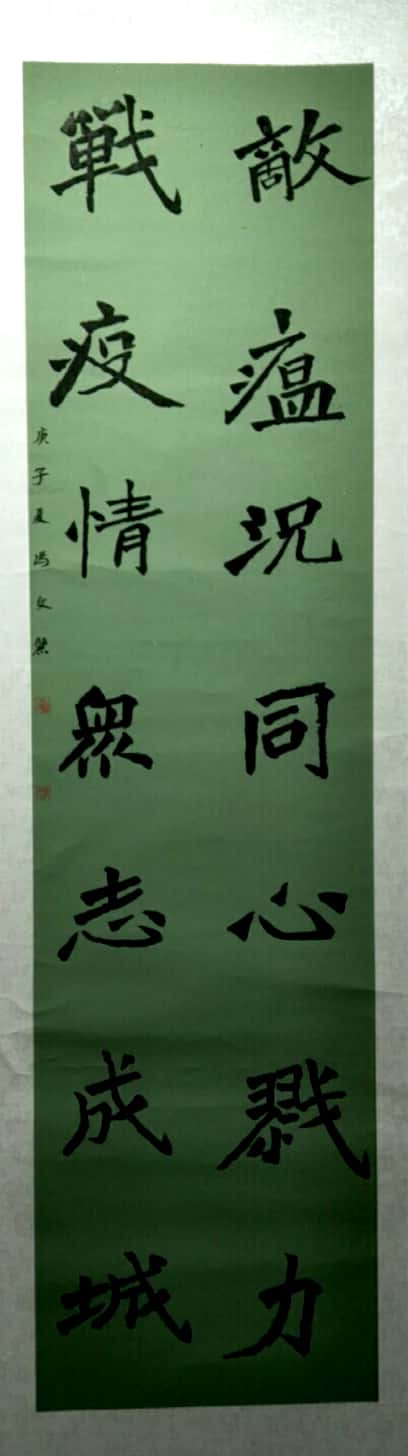 敵瘟況同心戮力
戰疫情眾志成城
庚子夏馮文然